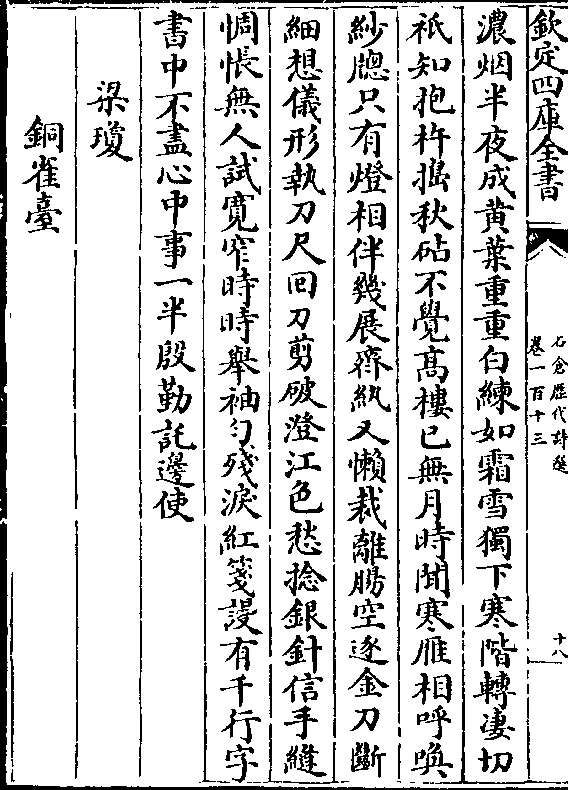 欽定四庫全書
石倉歷代詩選
卷一百十三
十八
濃烟半夜成黃葉重重白練如霜雪獨下寒階轉淒切
祇知抱杵搗秋砧不覺髙樓已無月時聞寒雁相呼喚
紗牕只有燈相伴幾展齊紈又懶裁離腸空逐金刀斷
細想儀形執刀尺回刀剪破澄江色愁捻銀針信手縫
惆悵無人試寛窄時時舉袖勻殘淚紅箋謾有千行字
書中不盡心中事一半殷勤託邊使
梁瓊
銅雀臺